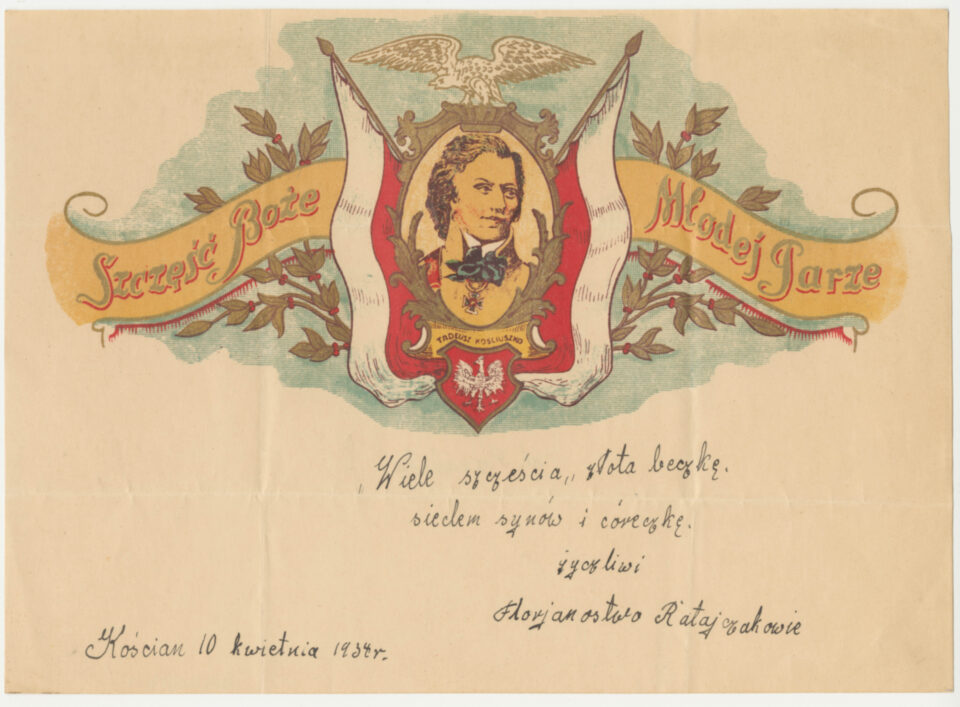 Szczęść Boże Młodej Parze
TADEUSZ KOŚCIUSZKO
„Wiele szczęścia„ złota beczkę.
siedem synów i córeczkę.
życzliwi
Florjanostwo Ratajczakowie
Kościan 10 kwietnia